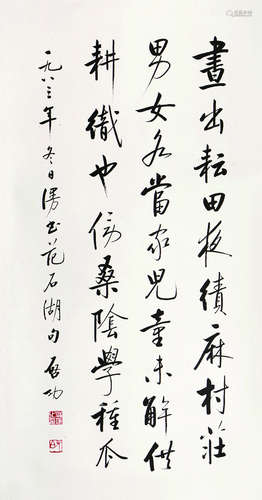 晝出耘田夜績麻村莊
男女各當家兒童未解供
耕織也傍桑陰學種瓜
一九八三年冬日漫书范石湖句 启功